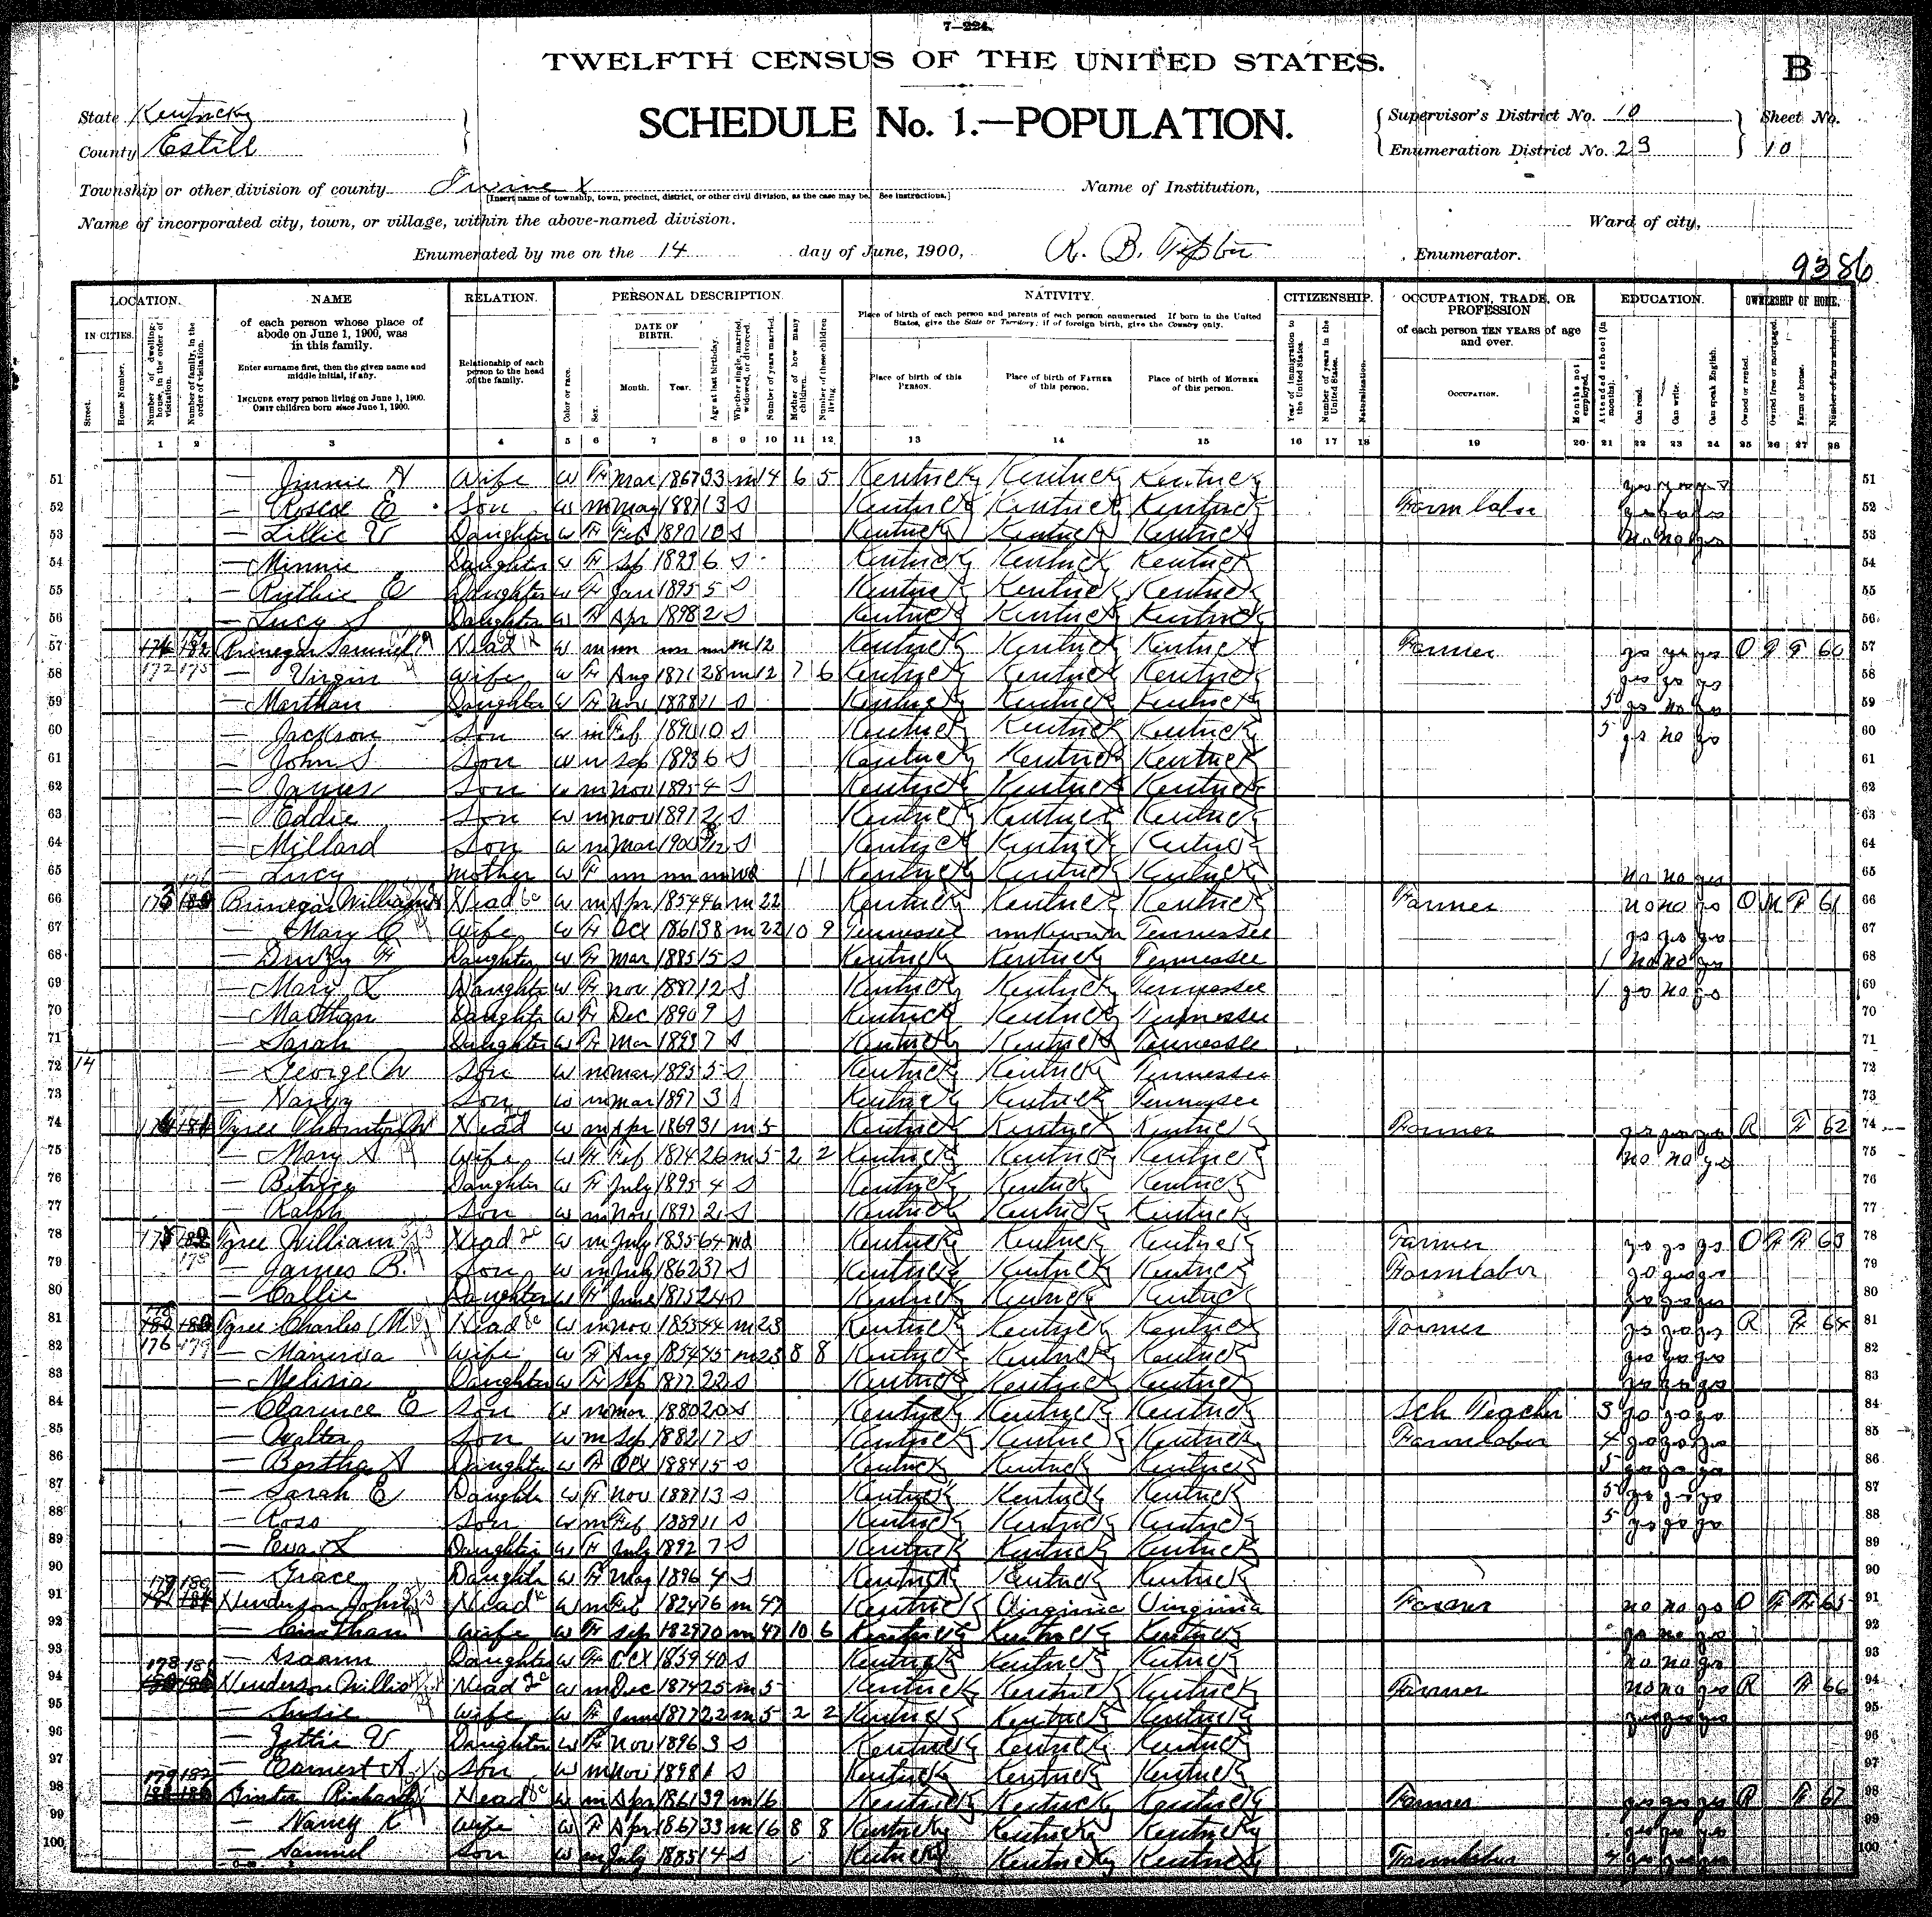 7—224.
TWELFTH CENSUS OF THE UNITED STATES.
B
State Kentucky
County Estill
SCHEDULE No. 1.—POPULATION.
Supervisor's District No. 10
Enumeration District No. 29
Sheet No.
10
Township or other division of county Irvine x
[Insert name of township, town, precinct, district, or other civil division, as the case may be. See instructions.]
Name of Institution,
Name of incorporated city, town, or village, within the above-named division.
Ward of city,
Enumerated by me on the 14 day of June, 1900, R. B. Enumerator.
9386
LOCATION. NAME RELATION. PERSONAL DESCRIPTION. NATIVITY. CITIZENSHIP. OCCUPATION, TRADE, OR PROFESSION EDUCATION. OWNERSHIP OF HOME.
IN CITIES. Street. House Number. Number of dwelling-house, in the order of visitation. Number of family, in the order of visitation.
of each person whose place of abode on June 1, 1900, was in this family.
Enter surname first, then the given name and middle initial, if any.
INCLUDE every person living on June 1, 1900. OMIT children born since June 1, 1900.
Relationship of each person to the head of the family.
Color or race. Sex. DATE OF BIRTH. Month. Year. Age at last birthday. Whether single, married, widowed, or divorced. Number of years married. Mother of how many children. Number of these children living.
Place of birth of each person and parents of each person enumerated. If born in the United States, give the State or Territory; if of foreign birth, give the Country only.
Place of birth of this PERSON. Place of birth of FATHER of this person. Place of birth of MOTHER of this person.
Year of immigration to the United States. Number of years in the United States. Naturalization.
of each person TEN YEARS of age and over.
OCCUPATION. Months not employed.
Attended school (in months). Can read. Can write. Can speak English.
Owned or rented. Owned free or mortgaged. Farm or house. Number of farm schedule.
1 2 3 4 5 6 7 8 9 10 11 12 13 14 15 16 17 18 19 20 21 22 23 24 25 26 27 28
51 — Jinnie H Wife W F Mar 1867 33 m 14 6 5 Kentucky Kentucky Kentucky yes yes yes 51
52 — Roscoe E Son W m May 1887 13 S Kentucky Kentucky Kentucky Farm labor 52
53 — Lillie V Daughter W F Feb 1890 10 S Kentucky Kentucky Kentucky no no yes 53
54 — Minnie Daughter W F Sep 1893 6 S Kentucky Kentucky Kentucky 54
55 — Ruthie E Daughter W F Jan 1895 5 S Kentucky Kentucky Kentucky 55
56 — Lucy S Daughter W F Apr 1898 2 S Kentucky Kentucky Kentucky 56
57 172 Brinegar Samuel Head W m un un un m 12 Kentucky Kentucky Kentucky Farmer yes yes yes O F F 60 57
58 — Virgin Wife W F Aug 1871 28 m 12 7 6 Kentucky Kentucky Kentucky yes yes yes 58
59 — Marthan Daughter W F Nov 1888 11 S Kentucky Kentucky Kentucky 5 yes no yes 59
60 — Jackson Son W m Feb 1890 10 S Kentucky Kentucky Kentucky 5 yes no yes 60
61 — John S Son W m Sep 1893 6 S Kentucky Kentucky Kentucky 61
62 — James Son W m Nov 1895 4 S Kentucky Kentucky Kentucky 62
63 — Eddie Son W m Nov 1897 2 S Kentucky Kentucky Kentucky 63
64 — Millard Son W m Mar 1900 3/12 S Kentucky Kentucky Kentucky 64
65 — Lucy mother W F un un un Wd 1 1 Kentucky Kentucky Kentucky no no yes 65
66 173 Brinegar William Head W m Apr 1854 46 m 22 Kentucky Kentucky Kentucky Farmer no no yes O M F 61 66
67 — Mary C Wife W F Oct 1861 38 m 22 10 9 Tennessee unknown Tennessee yes yes yes 67
68 — Druzy F Daughter W F Mar 1885 15 S Kentucky Kentucky Tennessee 1 no no yes 68
69 — Mary L Daughter W F Nov 1887 12 S Kentucky Kentucky Tennessee 1 yes no yes 69
70 — Marthan Daughter W F Dec 1890 9 S Kentucky Kentucky Tennessee 70
71 — Sarah Daughter W F Mar 1893 7 S Kentucky Kentucky Tennessee 71
72 14 — George W Son W m Mar 1895 5 S Kentucky Kentucky Tennessee 72
73 — Harvy Son W m Mar 1897 3 S Kentucky Kentucky Tennessee 73
74 174 Tyree Thornton W Head W m Apr 1869 31 m 5 Kentucky Kentucky Kentucky Farmer yes yes yes R F 62 74
75 — Mary A Wife W F Feb 1874 26 m 5 2 2 Kentucky Kentucky Kentucky no no yes 75
76 — Bitrice Daughter W F July 1895 4 S Kentucky Kentucky Kentucky 76
77 — Ralph Son W m Nov 1897 2 S Kentucky Kentucky Kentucky 77
78 175 Tyree William Head W m July 1835 64 Wd Kentucky Kentucky Kentucky Farmer yes yes yes O F F 63 78
79 — James B. Son W m July 1862 37 S Kentucky Kentucky Kentucky Farm labor yes yes yes 79
80 — Callie Daughter W F June 1875 24 S Kentucky Kentucky Kentucky yes yes yes 80
81 176 179 Tyree Charles M Head W m Nov 1855 44 m 23 Kentucky Kentucky Kentucky Farmer yes yes yes R F 64 81
82 — Manerva Wife W F Aug 1854 45 m 23 8 8 Kentucky Kentucky Kentucky yes yes yes 82
83 — Melisia Daughter W F Sep 1877 22 S Kentucky Kentucky Kentucky yes yes yes 83
84 — Clarence E Son W m Mar 1880 20 S Kentucky Kentucky Kentucky Sch Teacher 3 yes yes yes 84
85 — Walter Son W m Sep 1882 17 S Kentucky Kentucky Kentucky Farm labor 4 yes yes yes 85
86 — Bertha A Daughter W F Oct 1884 15 S Kentucky Kentucky Kentucky 5 yes yes yes 86
87 — Sarah E Daughter W F Nov 1887 13 S Kentucky Kentucky Kentucky 5 yes yes yes 87
88 — Ross Son W m Feb 1889 11 S Kentucky Kentucky Kentucky 5 yes yes yes 88
89 — Eva L Daughter W F July 1892 7 S Kentucky Kentucky Kentucky 89
90 — Grace Daughter W F May 1896 4 S Kentucky Kentucky Kentucky 90
91 Henderson John Head W m Feb 1824 76 m 47 Kentucky Virginia Virginia Farmer no no yes O F F 65 91
92 — Wife W F Sep 1829 70 m 47 10 6 Kentucky Kentucky Kentucky yes no yes 92
93 — Daughter W F Oct 1859 40 S Kentucky Kentucky Kentucky no no yes 93
94 178 181 Henderson Willis Head W m Dec 1874 25 m 5 Kentucky Kentucky Kentucky Farmer no no yes R F 66 94
95 — Susie Wife W F June 1877 22 m 5 2 2 Kentucky Kentucky Kentucky yes yes yes 95
96 — Daughter W F Nov 1896 3 S Kentucky Kentucky Kentucky 96
97 — Earnest A Son W m Nov 1898 1 S Kentucky Kentucky Kentucky 97
98 179 182 Ginter Richard Head W m Apr 1861 39 m 16 Kentucky Kentucky Kentucky Farmer yes yes yes R F 67 98
99 — Nancy K Wife W F Apr 1867 33 m 16 8 8 Kentucky Kentucky Kentucky yes yes yes 99
100 — Samuel Son W m July 1885 14 S Kentucky Kentucky Kentucky Farm labor 4 yes yes yes 100